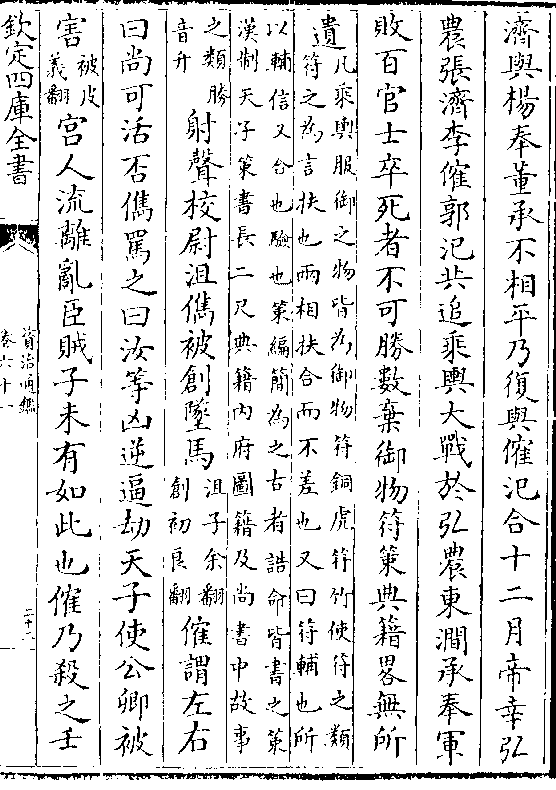 濟與楊奉董承不相平乃復與傕汜合十二月帝幸弘
農張濟李傕郭汜共追乘輿大戰於弘農東澗承奉軍
敗百官士卒死者不可勝數棄御物符策典籍畧無所
遺凡乘輿服御之物皆為御物符銅虎符竹使符之類
符之為言扶也兩相扶合而不差也又曰符輔也所
以輔信又合也驗也策編簡為之古者誥命皆書之策
漢制天子策書長二尺典籍内府圖籍及尚書中故事
之類勝
音升
射聲校尉沮儁被創墜馬
沮子余翻
創初良翻
傕謂左右
曰尚可活否儁罵之曰汝等凶逆逼劫天子使公卿被
害
被皮
義翻
宫人流離亂臣賊子未有如此也傕乃殺之壬
欽定四庫全書
資治通鑑
卷六十一
二十二